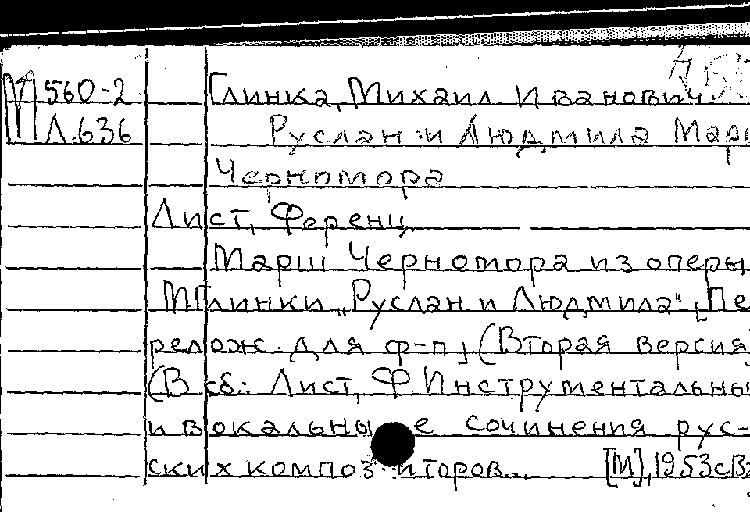 М 560-2 Глинка, Михаил Иванович.
Л.636 Руслан и Людмила Марш
Черномора
Лист, Ференц
Марш Черномора из оперы
М Глинки „Руслан и Людмила“ [Пе
релож. для ф-п] (Вторая версия)
(В сб.: Лист, Ф Инструментальны
и вокальные сочинения рус-
ских композиторов... [М], 1953 с